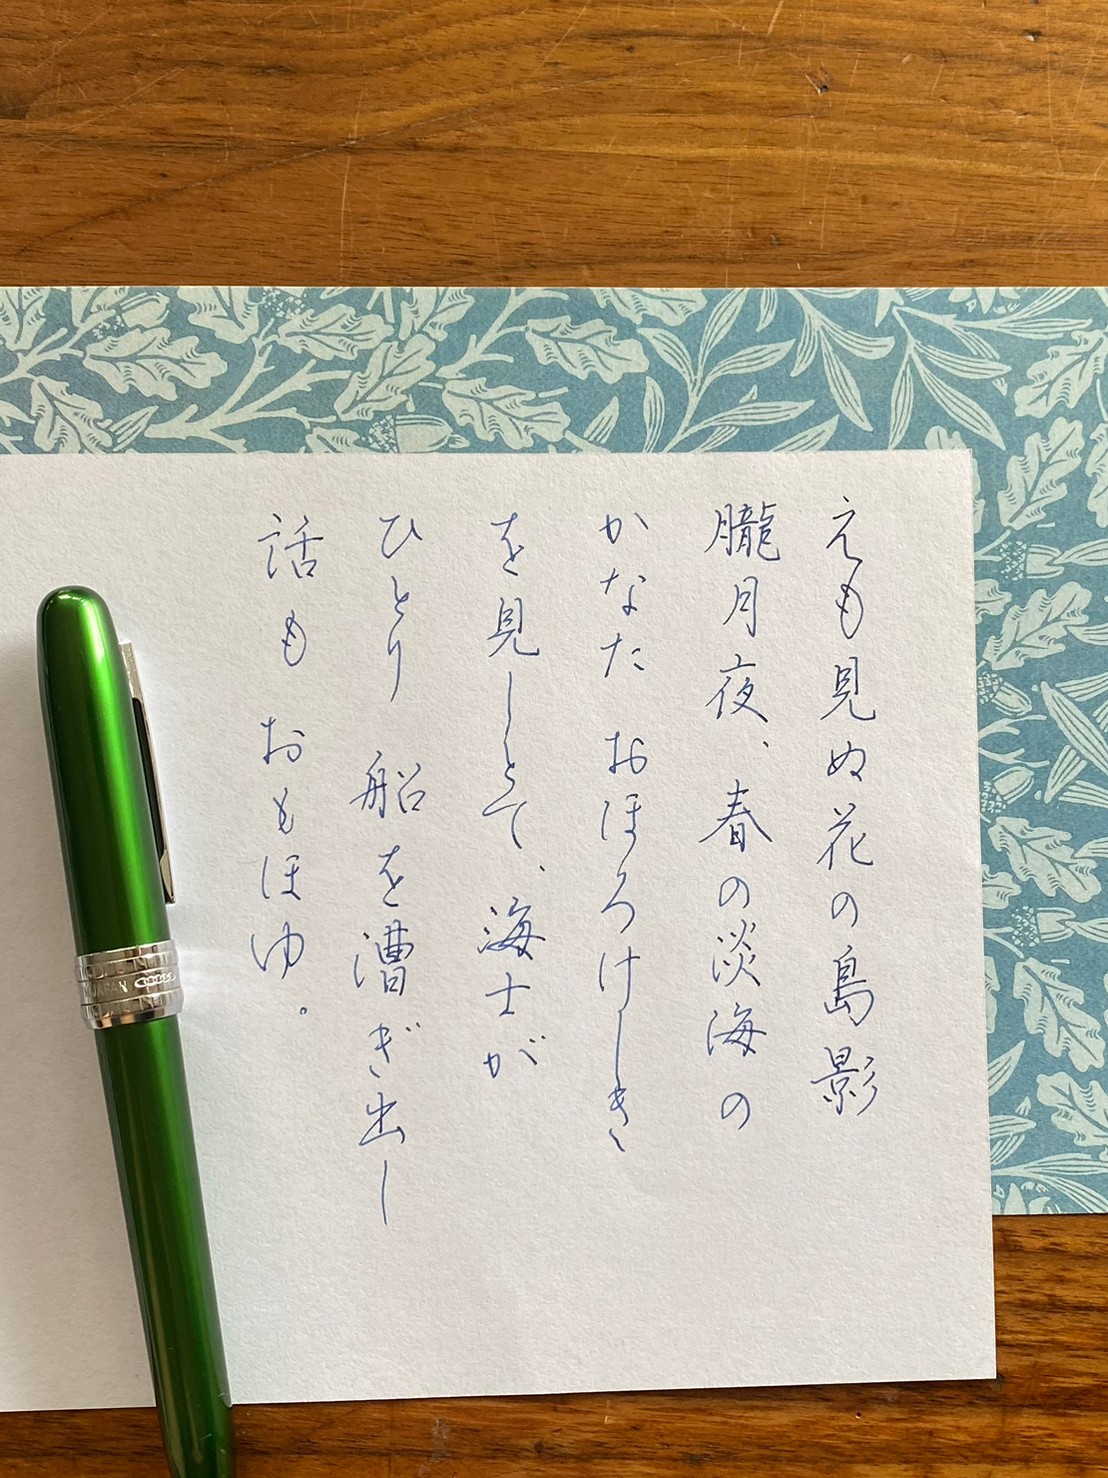 えも見ぬ花の島影
朧月夜、春の淡海の
かなた おほろけしき
を見しとて、海士が
ひとり 船を漕ぎ出し
話も おもほゆ。
JAPAN